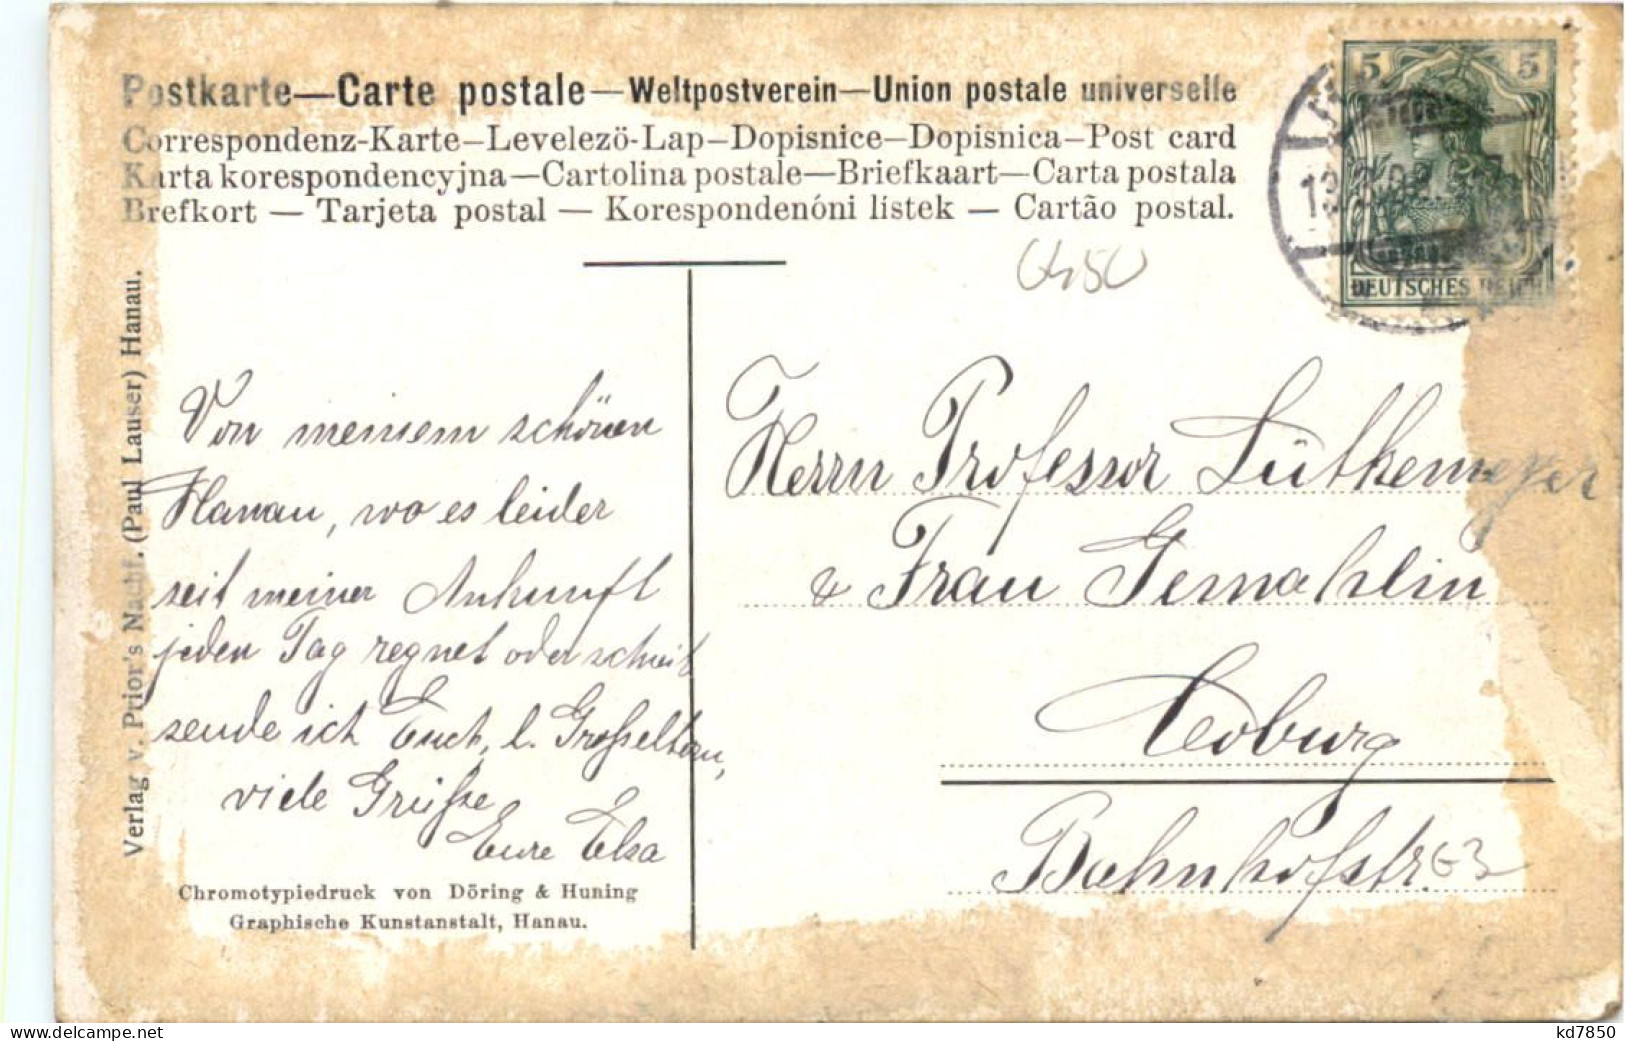 Postkarte—Carte postale—Weltpostverein—Union postale universelle
Correspondenz-Karte—Levelezö-Lap—Dopisnice—Dopisnica—Post card
Karta korespondencyjna—Cartolina postale—Briefkaart—Carta postala
Brefkort — Tarjeta postal — Korespondenóni listek — Cartão postal.
5 5
DEUTSCHES REICH
Verlag v. Prior's Nachf. (Paul Lauser) Hanau.
Von meinem schönen
Hanau, wo es leider
seit meiner Ankunft
jeden Tag regnet oder schneit
sende ich Euch, l. Großeltern,
viele Grüße
Eure Elsa
Chromotypiedruck von Döring & Huning
Graphische Kunstanstalt, Hanau.
Herrn Professor Lütkemeyer
& Frau Gemahlin
Coburg
Bahnhofstr.
www.delcampe.net
kd7850